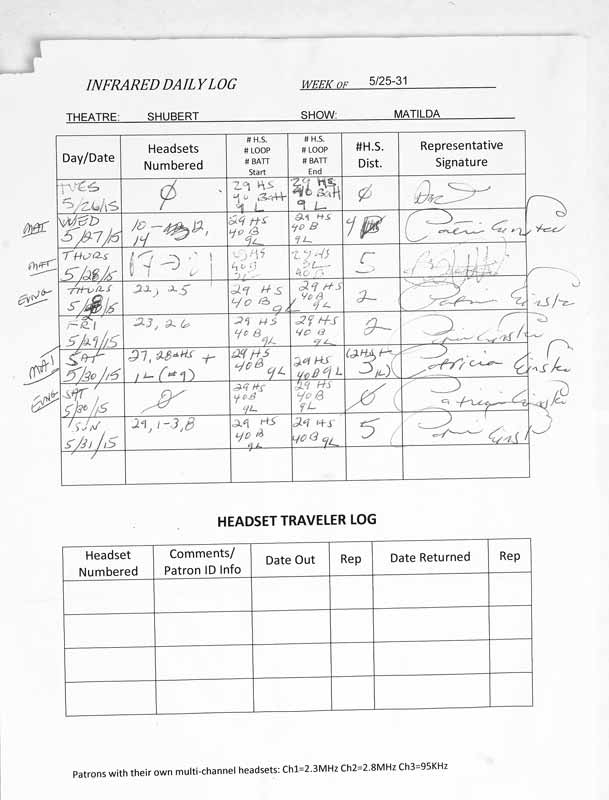 INFRARED DAILY LOG WEEK OF 5/25-31
THEATRE: SHUBERT SHOW: MATILDA
Day/Date Headsets Numbered # H.S. # LOOP # BATT Start # H.S. # LOOP # BATT End #H.S. Dist. Representative Signature
TUES 5/26/15 0 29 HS 40 Batt 9 L 29 HS 40 Batt 9 L 0
MAT WED 5/27/15 10- 12, 14 29 HS 40 B 9L 29 HS 40 B 9L 4
MAT THURS 5/28/15 17-21 29 HS 40 B 29 HS 40 B 5
EVNG THURS 5/28/15 22, 25 29 HS 40 B 9L 29 HS 40 B 9L 2
FRI 5/29/15 23, 26 29 HS 40 B 9L 29 HS 40 B 9L 2
MAT SAT 5/30/15 27, 28 HS + 1L (#9) 29 HS 40 B 9L 29 HS 40 B 9L (2HS + 1L) 3 Patricia
EVNG SAT 5/30/15 0 29 HS 40 B 9L 29 HS 40 B 9L 0 Patricia
SUN 5/31/15 29, 1-3, 8 29 HS 40 B 9L 29 HS 40 B 9L 5
HEADSET TRAVELER LOG
Headset Numbered Comments/ Patron ID Info Date Out Rep Date Returned Rep
Patrons with their own multi-channel headsets: Ch1=2.3MHz Ch2=2.8MHz Ch3=95KHz